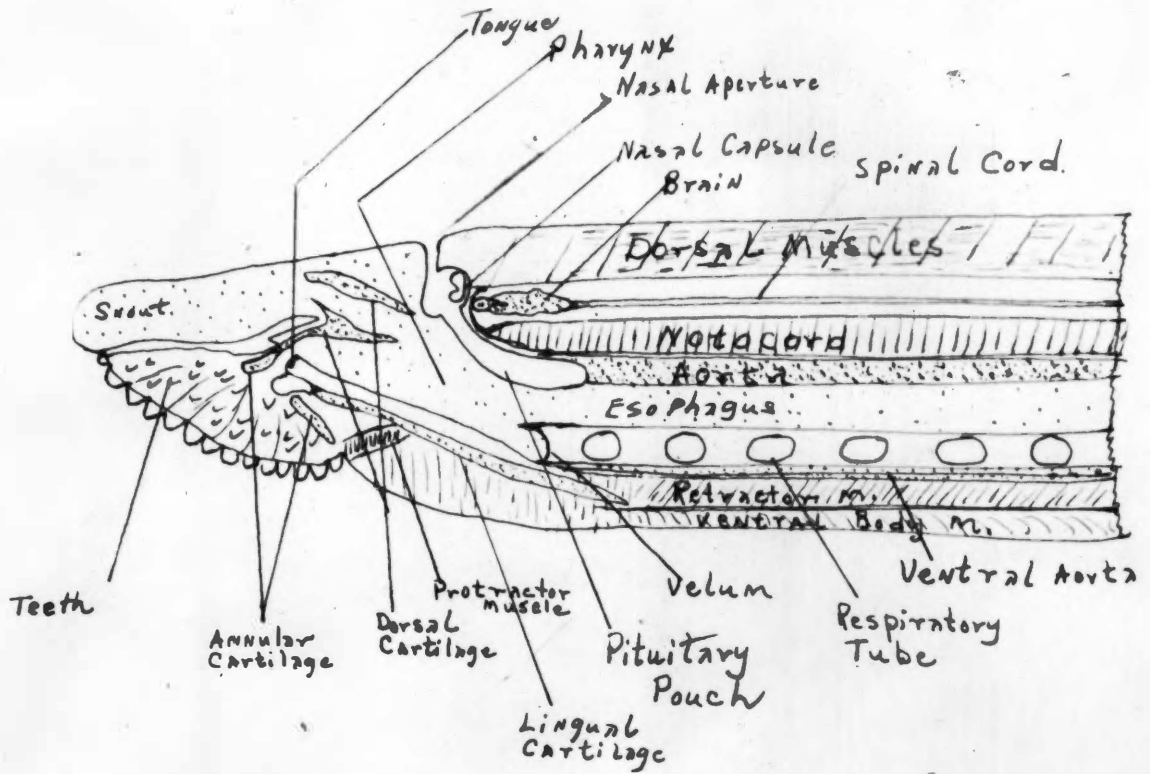 Tongue
Pharynx
Nasal Aperture
Nasal Capsule
Brain
Spinal Cord.
Dorsal Muscles
Snout.
Notocord
Aorta
Esophagus
Retractor m.
Ventral Body m.
Ventral Aorta
Velum
Respiratory
Tube
Teeth
Annular
Cartilage
Dorsal
Cartilage
Protractor
Muscle
Pituitary
Pouch
Lingual
Cartilage